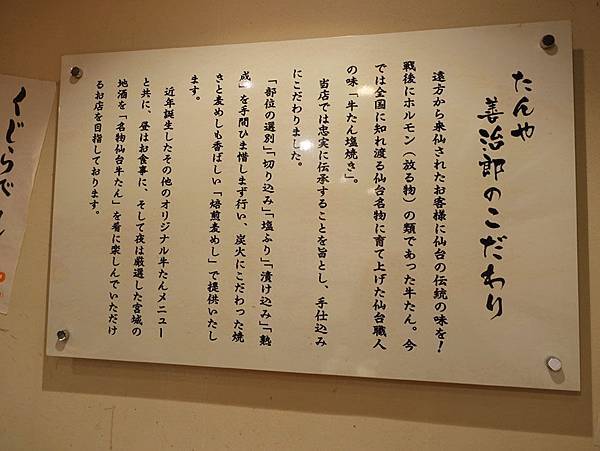 たんや
善治郎のこだわり
遠方から来仙されたお客様に仙台の伝統の味を！
戦後にホルモン（放る物）の類であった牛たん。今
では全国に知れ渡る仙台名物に育て上げた仙台職人
の味「牛たん塩焼き」。
当店では忠実に伝承することを旨とし、手仕込み
にこだわりました。
「部位の選別」「切り込み」「塩ふり」「漬け込み」「熟
成」を手間ひま惜しまず行い、炭火にこだわった焼
きと麦めしも香ばしい「焙煎麦めし」で提供いたし
ます。
近年誕生したその他のオリジナル牛たんメニュー
と共に、昼はお食事に、そして夜は厳選した宮城の
地酒を「名物仙台牛たん」を肴に楽しんでいただけ
るお店を目指しております。
くじらベ